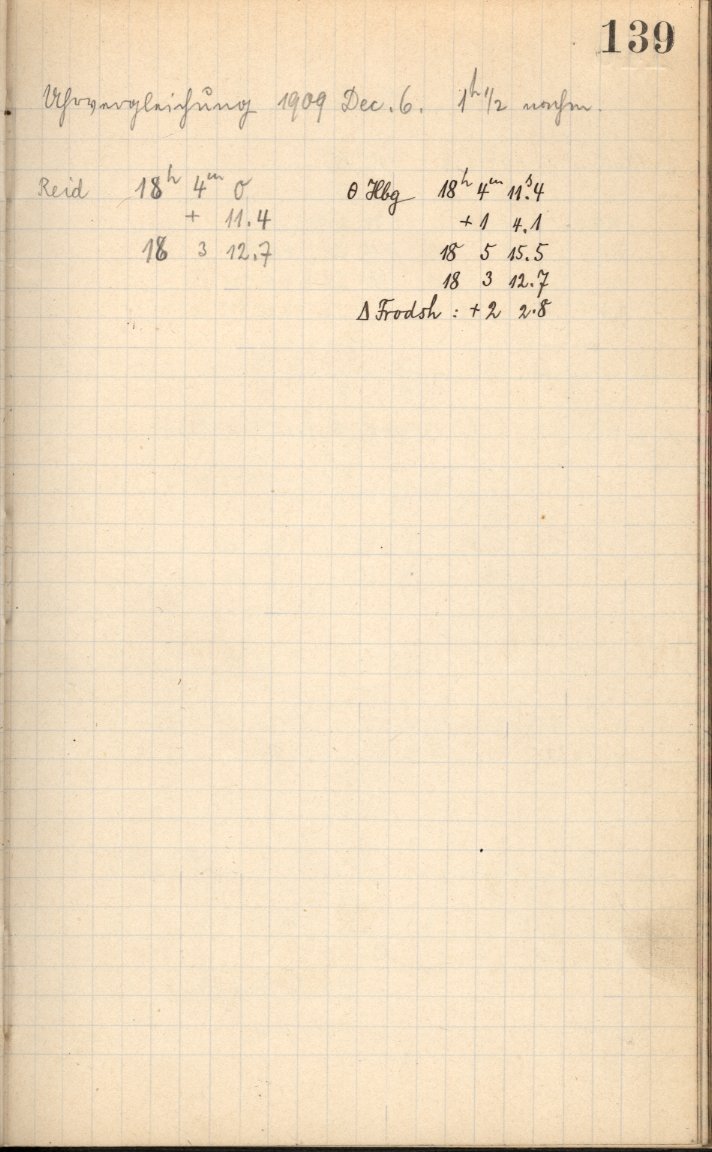 139
Uhrvergleichung 1909 Dec. 6. 1ʰ 1/2 nachm.
Reid 18ʰ 4ᵐ 0
+ 11.4
18 3 12.7
θ Hbg 18ʰ 4ᵐ 11ˢ.4
+1 4.1
18 5 15.5
18 3 12.7
Δ Frodsh : +2 2.8